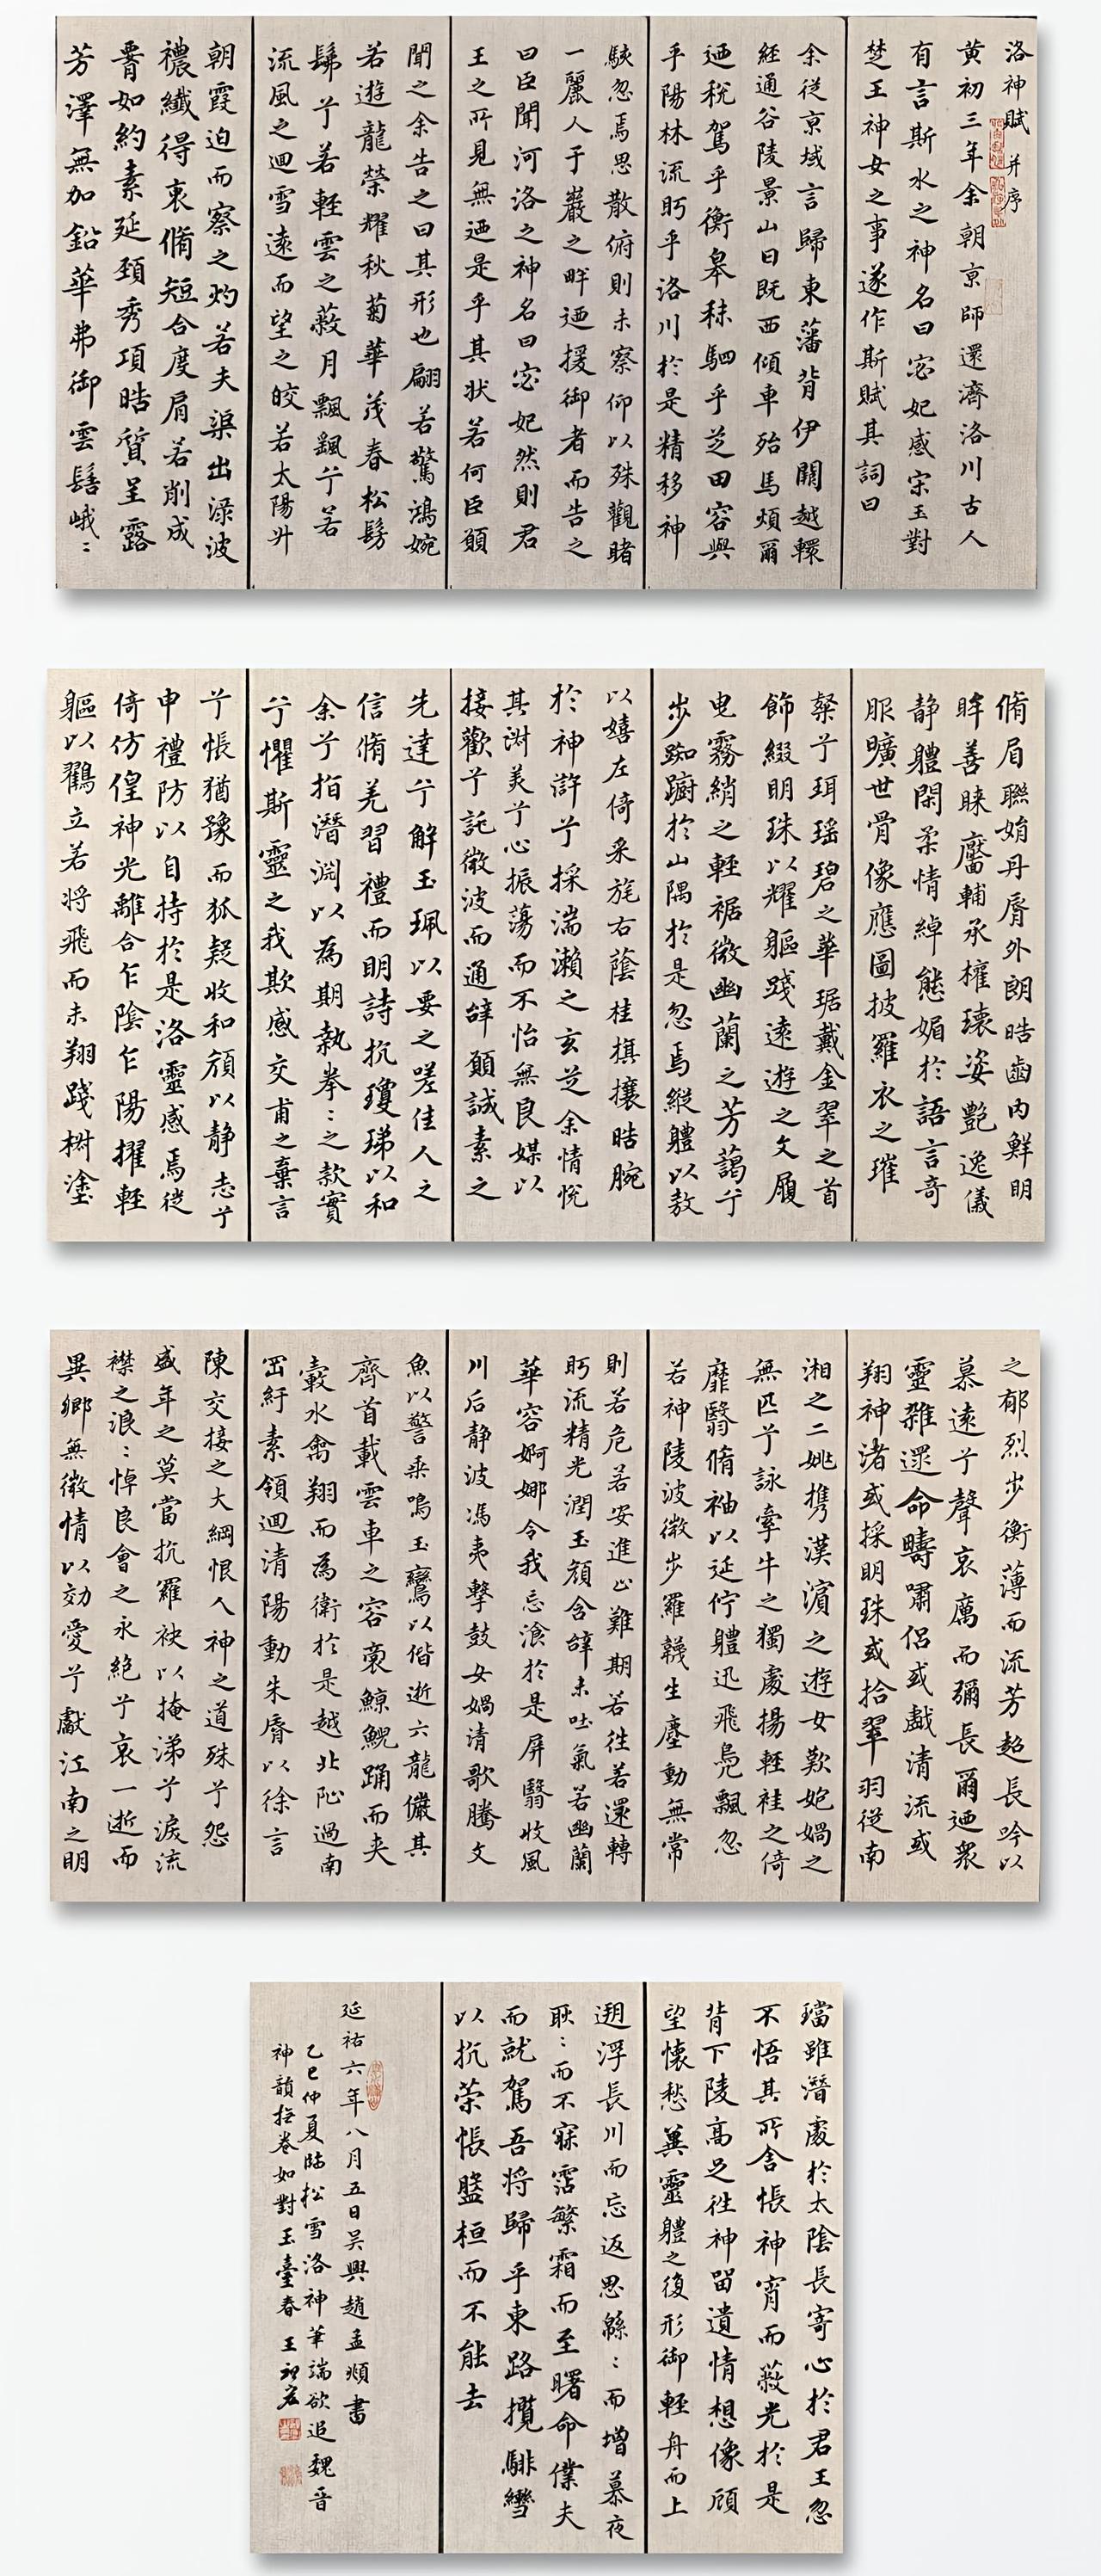 洛神賦 并序
黄初三年余朝京師還濟洛川古人
有言斯水之神名曰宓妃感宋玉對
楚王神女之事遂作斯賦其詞曰
余從京域言歸東藩背伊闕越轘
經通谷陵景山日既西傾車殆馬煩爾
迺稅駕乎衡皋秣駟乎芝田容與
乎陽林流眄乎洛川於是精移神
駭忽焉思散俯則未察仰以殊觀睹
一麗人于巖之畔迺援御者而告之
曰臣聞河洛之神名曰宓妃然則君
王之所見無迺是乎其状若何臣願
聞之余告之曰其形也翩若驚鴻婉
若遊龍榮耀秋菊華茂春松髣
髴兮若輕雲之蔽月飄飖兮若
流風之迴雪遠而望之皎若太陽升
朝霞迫而察之灼若夫渠出渌波
襛纖得衷脩短合度肩若削成
署如約素延頚秀項皓質呈露
芳澤無加鉛華弗御雲髻峨〻
脩眉聯娟丹脣外朗皓齒内鮮明
眸善睐靨輔承權瓌姿艷逸儀
静體閑柔情綽態媚於語言奇
服曠世骨像應圖披羅衣之璀
粲兮珥瑶碧之華琚戴金翠之首
飾綴明珠以耀軀踐遠遊之文履
曳霧綃之輕裾微幽蘭之芳藹兮
步踟躕於山隅於是忽焉縱體以敖
以嬉左倚采旄右蔭桂旗攘皓腕
於神滸兮採湍瀨之玄芝余情悅
其淑美兮心振蕩而不怡無良媒以
接歡兮託微波而通辭願誠素之
先達兮解玉珮以要之嗟佳人之
信脩羌習禮而明詩抗瓊珶以和
余兮指潛淵以為期執拳〻之款實
兮懼斯靈之我欺感交甫之棄言
兮悵猶豫而狐疑收和顔以静志兮
申禮防以自持於是洛靈感焉徙
倚仿偟神光離合乍陰乍陽擢輕
軀以鸖立若将飛而未翔踐樹塗
之郁烈步衡薄而流芳超長吟以
慕遠兮聲哀厲而彌長爾迺衆
靈雜遝命疇嘯侣或戲清流或
翔神渚或採明珠或拾翠羽從南
湘之二姚携漢濵之遊女歎妑媧之
無匹兮詠牽牛之獨處揚輕袿之倚
靡翳脩袖以延佇體迅飛鳧飄忽
若神陵波微步羅韈生塵動無常
則若危若安進止難期若往若還轉
眄流精光潤玉顔含辭未吐氣若幽蘭
華容婀娜令我忘湌於是屏翳收風
川后静波馮夷擊鼓女媧清歌騰文
魚以警乘鳴玉鸞以偕逝六龍儼其
齊首載雲車之容裔鯨鯢踊而夾
轂水禽翔而為衛於是越北沚過南
岡紆素領迴清陽動朱脣以徐言
陳交接之大綱恨人神之道殊兮怨
盛年之莫當抗羅袂以掩涕兮淚流
襟之浪〻悼良會之永絶兮哀一逝而
異鄉無微情以効愛兮獻江南之明
璫雖潛處於太陰長寄心於君王忽
不悟其所舍悵神宵而蔽光於是
背下陵高足往神留遺情想像顧
望懷愁冀靈體之復形御輕舟而上
遡浮長川而忘返思緜〻而增慕夜
耿〻而不寐霑繁霜而至曙命僕夫
而就駕吾将歸乎東路攬騑轡
以抗策悵盤桓而不能去
延祐六年八月五日吴興趙孟頫書
乙巳仲夏臨松雪洛神筆端欲追魏晉
神韻抚卷如對玉臺春 王